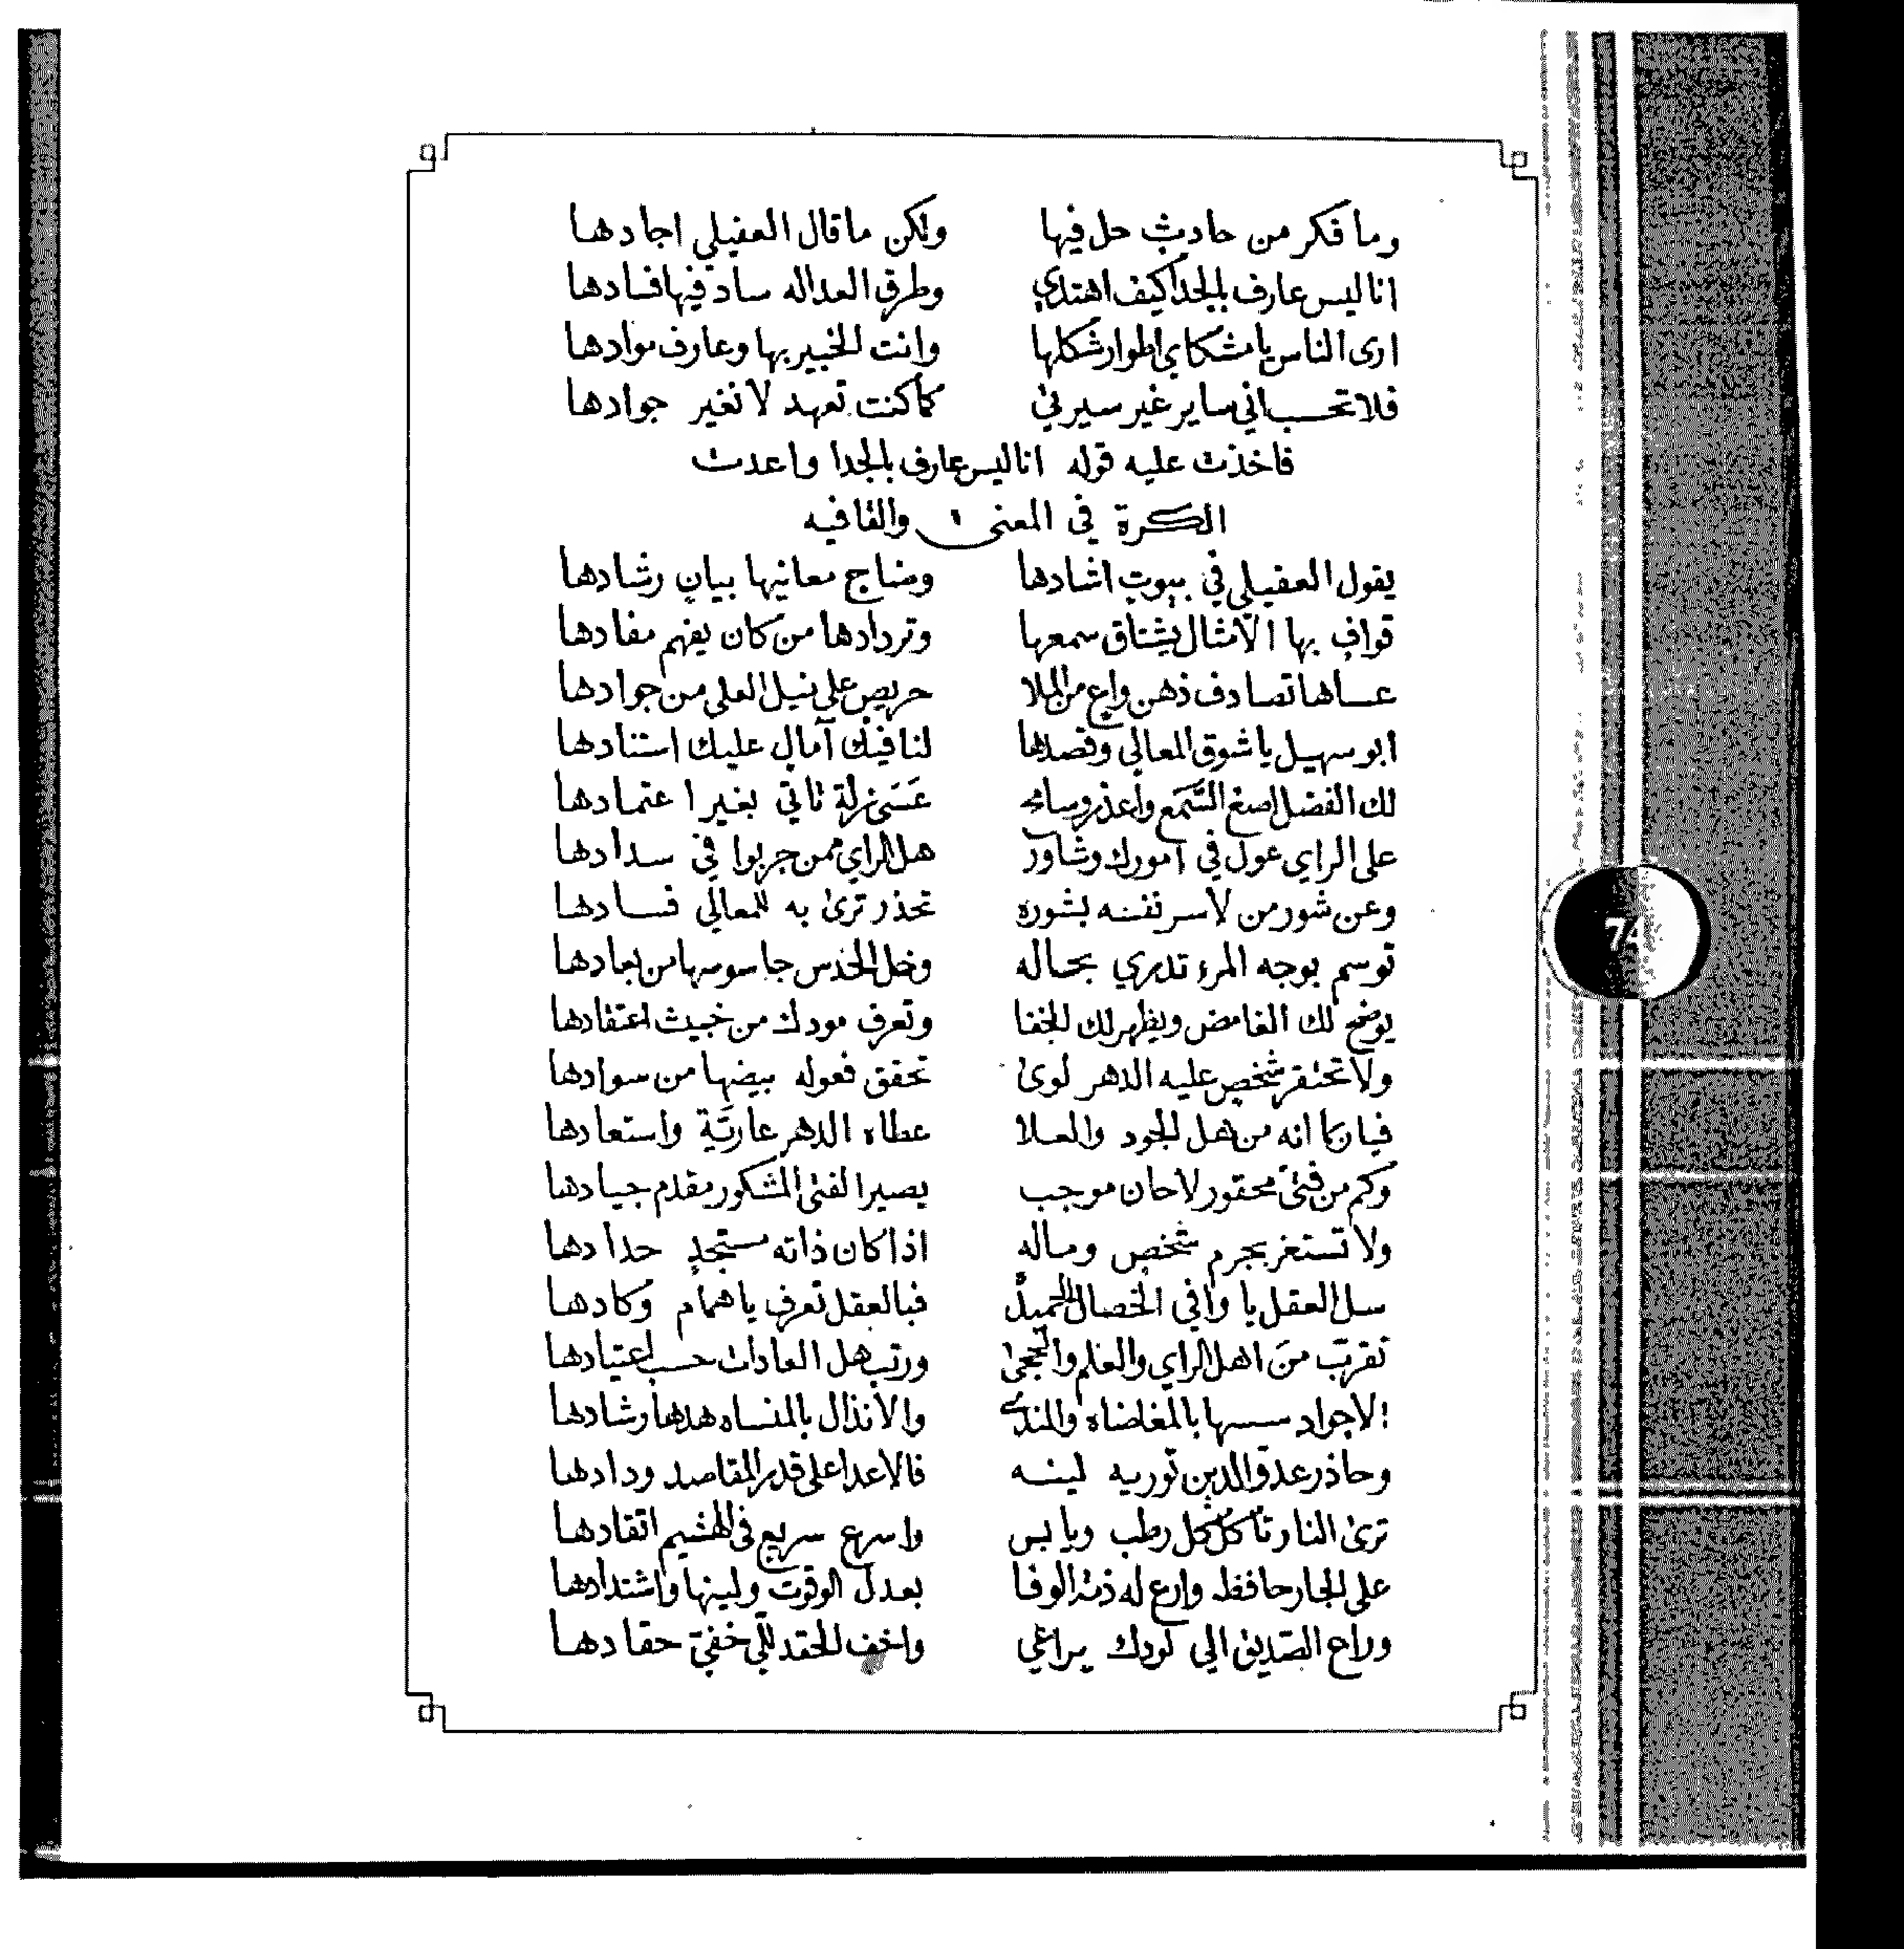 وما فكر من حادثٍ حل فيها ولكن ما قال العقيلي اجادها
انا ليس عارف بالجدا كيف اهتدي وطرق العداله ساد فيها فسادها
ارى الناس يا مشكاي اطوار شكلها وانت الخبير بها وعارف موادها
فلا تحسب اني ساير غير سيرتي كما كنت تعهد لا تغير جوادها
فاخذت عليه قوله انا ليس عارف بالجدا واعدت
الكرة في المعنى والقافيه
يقول العقيلي في بيوتٍ اشادها ومنتاج معانيها بيان رشادها
قوافٍ بها الأمثال يشتاق سمعها وتردادها من كان يفهم مفادها
عساها تصادف ذهن واعٍ من الملا حريصٍ على نيل العلى من جوادها
ابو سهيل يا شوق المعالي وقصدها لنا فيك آمالٍ عليك استنادها
لك الفضل اصغ السَّمع واعذر وسامح عَسَى زلة تاتي بغير اعتمادها
على الراي عول في امورك وشاور هل الراي ممن جربوا في سدادها
وعن شور من لا سر نفسه بشوره تحذر ترى به للمعالي فسادها
توسم بوجه المرء تدري بحاله وخل الحدس جاسوسها من بعادها
يوضح لك الغامض ويظهر لك الخفا وتعرف مودك من خبيث اعتقادها
ولا تحتقر شخصٍ عليه الدهر لوى تحقق فعوله بيضها من سوادها
فيا ربما انه من هل الجود والعلا عطاه الدهر عاريَّة واستعادها
وكم من فتىً محقور لا حان موجب يصير الفتى المشكور مقدم جيادها
ولا تستغر بجرم شخصٍ وماله اذا كان ذاته مستجدٍ حدادها
سل العقل يا وافي الخصال الحميدَّ فبالعقل تعرف يا همام وكادها
تقرَّب منَ اهل الراي والعلم والحجى ورتب هل العادات حسب اعتيادها
الاجواد سسها بالمغاضاه والندى والانذال بالمنساه هدها رشادها
وحاذر عدو الدين توريه لينه فالاعدا على قدر المقاصد ودادها
ترى النار تاكل كل رطبٍ ويابس واسرع سريعٍ في الهشيم اتقادها
على الجار حافظ وارع له ذمة الوفا بعدل الوقوت ولينها واشتدادها
وراع الصّديق الي لودك يراعي واخف الحقد للّي خفيّ حقادها